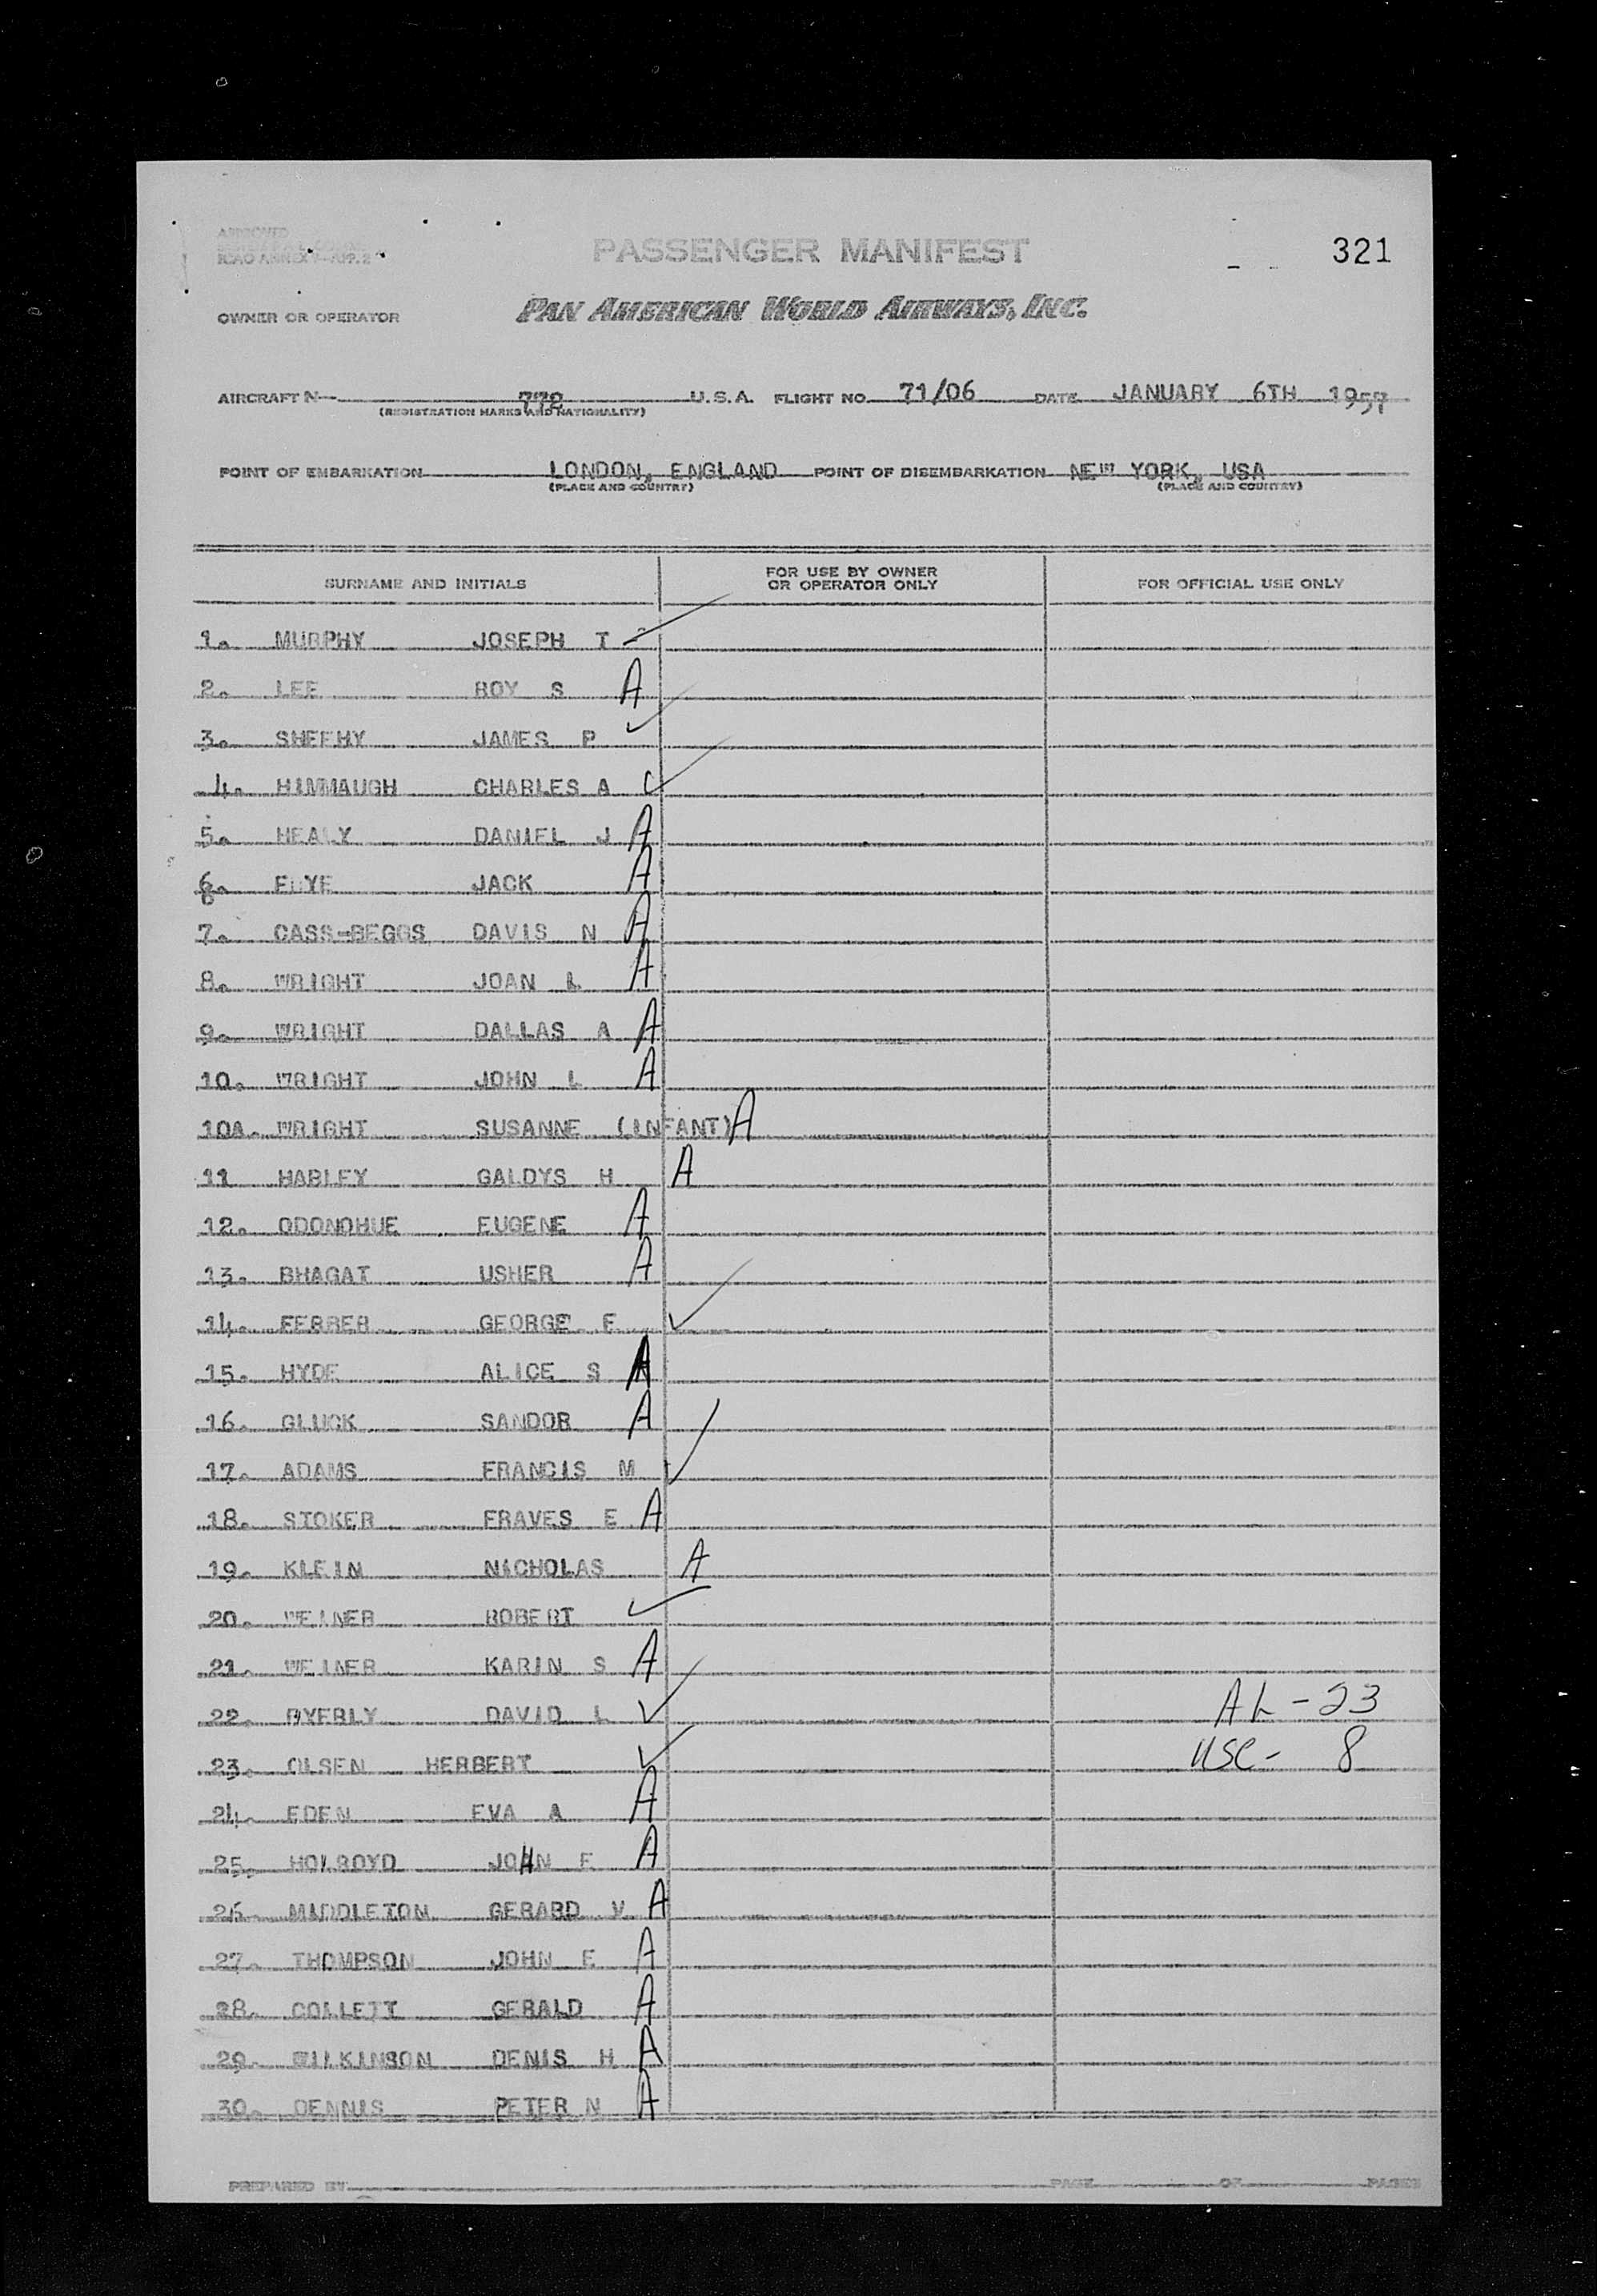 APPROVED
ICAO ANNEX 9—APP. 2
PASSENGER MANIFEST
321
OWNER OR OPERATOR
PAN AMERICAN WORLD AIRWAYS, INC.
AIRCRAFT N— 778 U.S.A. FLIGHT NO. 71/06 DATE JANUARY 6TH 1957
(REGISTRATION MARKS AND NATIONALITY)
POINT OF EMBARKATION LONDON, ENGLAND POINT OF DISEMBARKATION NEW YORK, USA
(PLACE AND COUNTRY) (PLACE AND COUNTRY)
SURNAME AND INITIALS FOR USE BY OWNER OR OPERATOR ONLY FOR OFFICIAL USE ONLY
1. MURPHY JOSEPH T ✓
2. LEE ROY S A
3. SHEEHY JAMES P ✓
4. HIMMAUGH CHARLES A ✓
5. HEALY DANIEL J A
6. JACK A
7. CASS-BEGGS DAVIS N A
8. WRIGHT JOAN L A
9. WRIGHT DALLAS A A
10. WRIGHT JOHN L A
10A. WRIGHT SUSANNE (INFANT) A
11 HARLEY GALDYS H A
12. ODONOHUE EUGENE A
13. BHAGAT USHER A
14. FERRER GEORGE F ✓
15. HYDE ALICE S A
16. GLUCK SANDOR A
17. ADAMS FRANCIS M ✓
18. STOKER FRAVES E A
19. KLEIN NICHOLAS A
20. WEINER ROBERT ✓
21. WEINER KARIN S A
22. BYERLY DAVID L ✓ AL - 23
23. OLSEN HERBERT ✓ USC - 8
24. EDEN EVA A A
25. HOLROYD JOHN F A
26. MIDDLETON GERARD V A
27. THOMPSON JOHN E A
28. COLLETT GERALD A
29. WILKINSON DENIS H A
30. DENNIS PETER N A
PREPARED BY PAGE OF PAGES